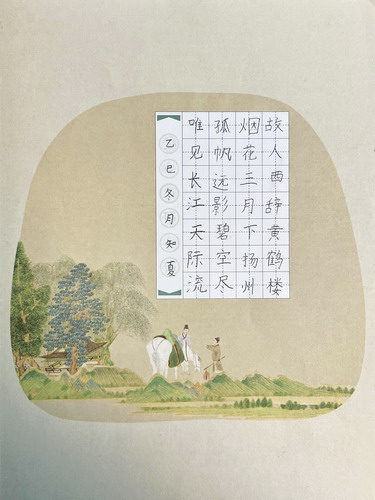 故人酉辞黄鹤楼
烟花三月下扬州
孤帆远影碧空尽
唯见长江天际流
乙巳冬月知夏